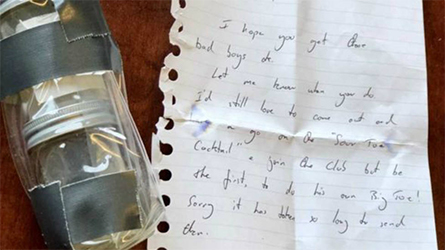 I hope you get these
bad boys ok.
Let me know when you do
I'd still love to come out and
a go on the "Sour Toe
Cocktail" & join the club but be
the first, to do his own Big Toe!
Sorry it has taken so long to send
them.